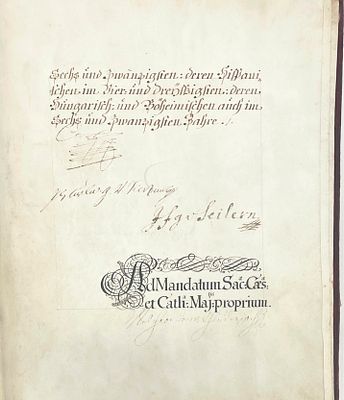 Sechs und Zwänzigsten: deren Hispani
schen im Vier: und Dreyssigsten: deren
Hungarisch: und Böheimischen auch im
Sechs und Zwanzigsten Jahre.
Seilern
Ad Mandatum Sac: Cæs:
et Cath: Maj: proprium.